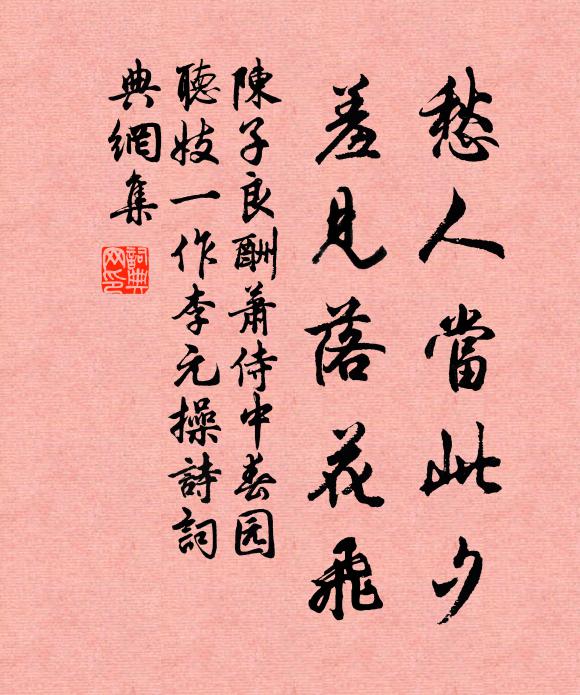 愁人當此夕
羞見落花飛
陳子良酬蕭侍中春园
聽妓一作李元操詩詞
典網集
詞典網印